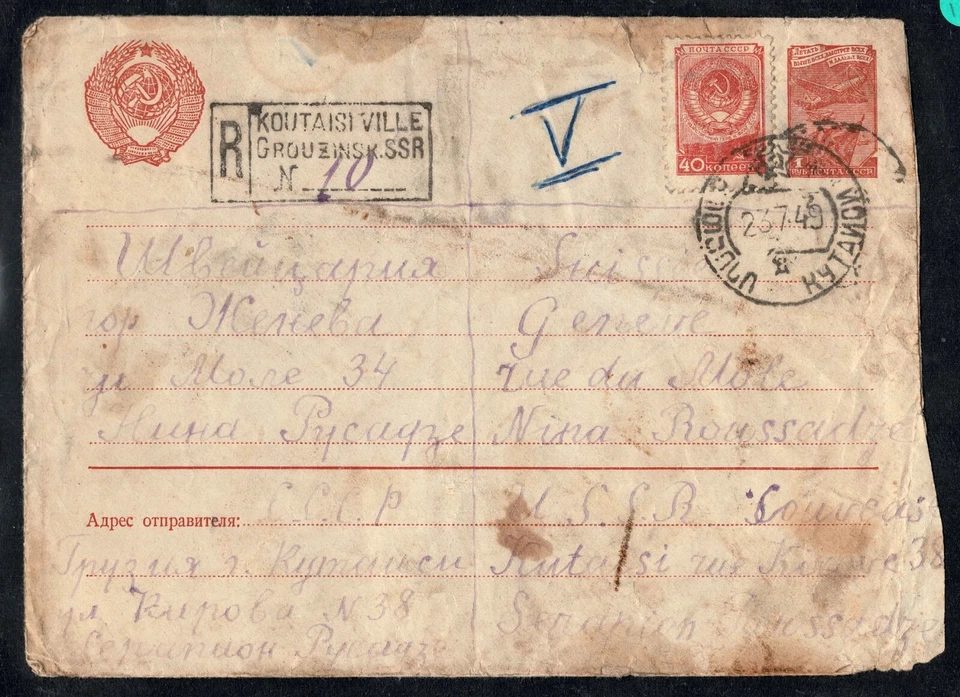 KOUTAISI VILLE
GROUZINSK.SSR
R
N 10
V
ПОЧТА СССР
40 КОПЕЕК
ЛЕТАТЬ
ВЫШЕ ВСЕХ, БЫСТРЕЕ ВСЕХ
1 РУБ ПОЧТА СССР
23.7.49
КУТАИСИ
Швейцария Suisse
гор Женева Geneve
ул Моле 34 rue du Mole
Нина Русадзе Nina Roussadze
С.С.С.Р U.S.S.R.
Адрес отправителя:
Грузия г. Кутаиси Kutaisi rue 38
ул Кирова N 38
Серапион Русадзе